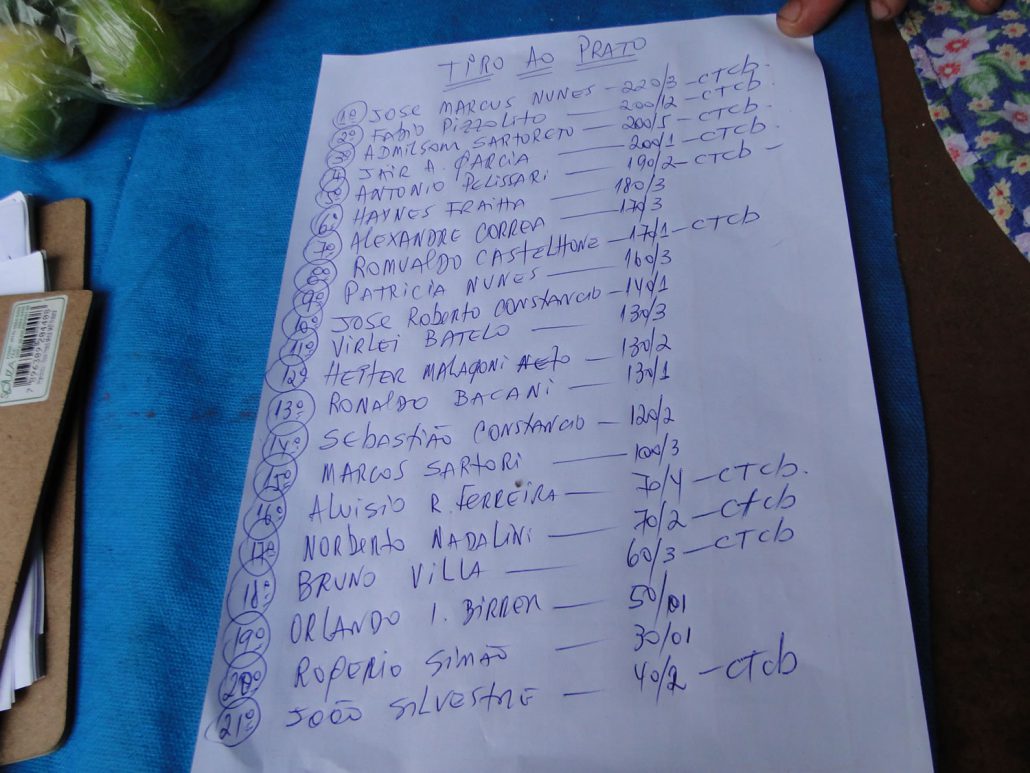 TIRO AO PRATO
1º JOSE MARCUS NUNES - 220/3 - CTCb.
2º FABIO PIZZOLITO — 200/12 - CTCb
3º ADMILSOM SARTORETO — 200/5 - CTCb.
4º JAIR A. GARCIA — 200/1 - CTCb.
5º ANTONIO PELISSARI — 190/2 - CTCb -
6º HAYNES FRAIHA — 180/3
7º ALEXANDRE CORREA — 170/3
8º ROMUALDO CASTELHONE - 170/1 - CTCb
9º PATRICIA NUNES — 160/3
10º JOSE ROBERTO CONSTANCIO - 140/1
11º VIRLEI BATELO — 130/3
12º HEITER MALAGONI NETO — 130/2
13º RONALDO BACANI — 130/1
14º SEBASTIÃO CONSTANCIO - 120/2
15º MARCOS SARTORI — 100/3
16º ALUISIO R. FERREIRA — 70/4 - CTCb.
17º NORBERTO NADALINI — 70/2 - CTCb
18º BRUNO VILLA — 60/3 - CTCb
19º ORLANDO I. BIRRER — 50/01
20º ROGERIO SIMÃO — 30/01
21º JOÃO SILVESTRE — 40/2 - CTCb